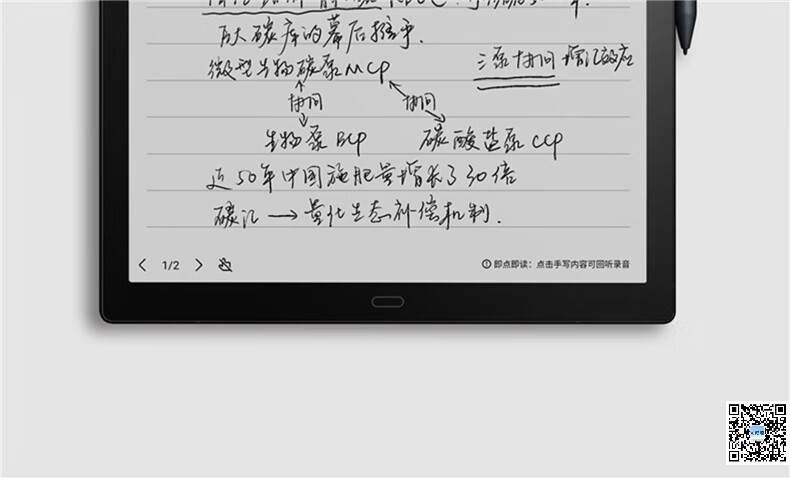 百大碳库的幕后推手.
微型生物碳泵MCP
三泵协同 增汇效应
协同 协同
生物泵BCP 碳酸盐泵CCP
近50年中国施肥量增长了30倍
碳汇 → 量化生态补偿机制.
1/2
即点即读：点击手写内容可回听录音